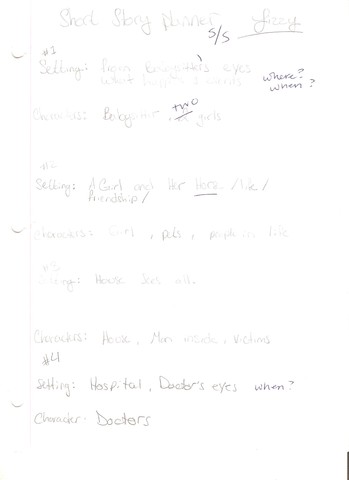 Short Story Planner
S/S
#1
Setting: From Babysitter's eyes where?
what happens when?
Characters: Babysitter, two girls
Setting: A Girl and Her Horse /life/
Friendship/
Characters: Girl, pets, people in life
#3
Setting: House Sees all.
Characters: House, Man inside, Victims
#4
Setting: Hospital, Doctor's eyes when?
Character: Doctors